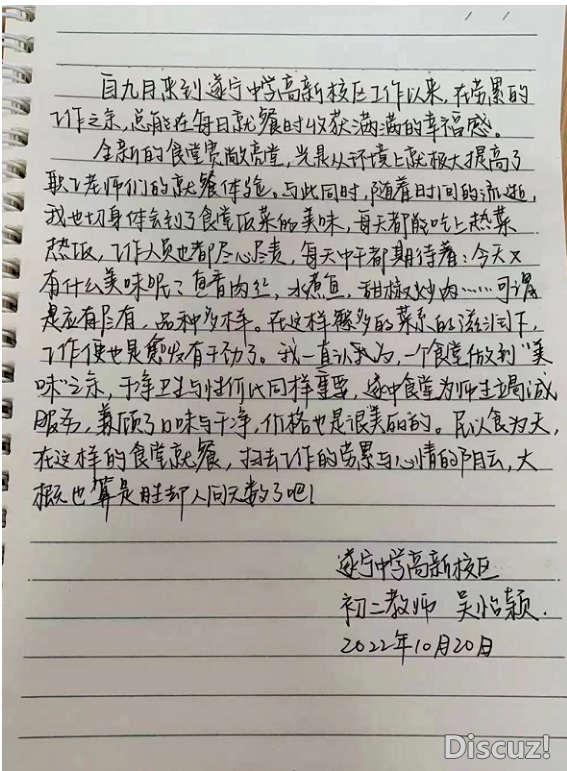 自九月来到遂宁中学高新校区工作以来，在劳累的
工作之余，总能在每日就餐时收获满满的幸福感。
全新的食堂宽敞亮堂，光是从环境上就极大提高了
职工老师们的就餐体验。与此同时，随着时间的流逝，
我也切身体会到了食堂饭菜的美味，每天都能吃上热菜
热饭，工作人员也都尽心尽责，每天中午都期待着：今天又
有什么美味呢？鱼香肉丝，水煮鱼，甜椒炒肉……可谓
是应有尽有，品种多样。在这样繁多的菜系的滋润下，
工作便也是愈发有干劲了。我一直认为，一个食堂做到“美
味”之余，干净卫生与性价比同样重要，遂中食堂为师生竭诚
服务，兼顾了口味与干净，价格也是很美丽的。民以食为天，
在这样的食堂就餐，扫去工作的劳累与心情的阴云，大
概也算是胜却人间无数了吧！
遂宁中学高新校区
初二教师 吴怡颖.
2022年10月20日
Discuz!